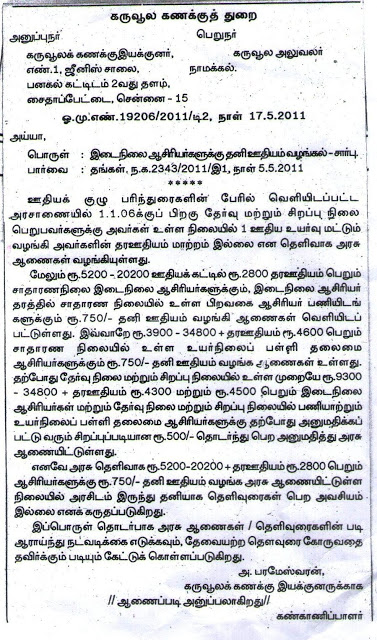 கருவூல கணக்குத் துறை
அனுப்புநர் பெறுநர்
கருவூலக் கணக்குஇயக்குனர், கருவூல அலுவலர்
எண்.1, ஜீனிஸ் சாலை, நாமக்கல்.
பனகல் கட்டிடம் 2வது தளம்,
சைதாப்பேட்டை, சென்னை - 15
ஓ.மு.எண்.19206/2011/டி2, நாள் 17.5.2011
அய்யா,
பொருள் : இடைநிலை ஆசிரியர்களுக்கு தனி ஊதியம் வழங்கல் - சார்பு.
பார்வை : தங்கள், ந.க.2343/2011/இ1, நாள் 5.5.2011
*****
ஊதியக் குழு பரிந்துரைகளின் பேரில் வெளியிடப்பட்ட
அரசாணையில் 1.1.06க்குப் பிறகு தேர்வு மற்றும் சிறப்பு நிலை
பெறுபவர்களுக்கு அவர்கள் உள்ள நிலையில் 1 ஊதிய உயர்வு மட்டும்
வழங்கி அவர்களின் தரஊதியம் மாற்றம் இல்லை என தெளிவாக அரசு
ஆணைகள் வழங்கியுள்ளது.
மேலும் ரூ.5200 - 20200 ஊதியக் கட்டில் ரூ.2800 தரஊதியம் பெறும்
சாதாரணநிலை இடைநிலை ஆசிரியர்களுக்கும், இடைநிலை ஆசிரியர்
தரத்தில் சாதாரண நிலையில் உள்ள பிறவகை ஆசிரியர் பணியிடங்
களுக்கும் ரூ.750/- தனி ஊதியம் வழங்கி ஆணைகள் வெளியிடப்
பட்டுள்ளது. இவ்வாறே ரூ.3900 - 34800 + தரஊதியம் ரூ.4600 பெறும்
சாதாரண நிலையில் உள்ள உயர்நிலைப் பள்ளி தலைமை
ஆசிரியர்களுக்கும் ரூ.750/- தனி ஊதியம் வழங்க ஆணைகள் உள்ளது.
தற்போது தேர்வு நிலை மற்றும் சிறப்பு நிலையில் உள்ள முறையே ரூ.9300
- 34800 + தரஊதியம் ரூ.4300 மற்றும் ரூ.4500 பெறும் இடைநிலை
ஆசிரியர்கள் மற்றும் தேர்வு நிலை மற்றும் சிறப்பு நிலையில் பணியாற்றும்
உயர்நிலைப் பள்ளி தலைமை ஆசிரியர்களுக்கு தற்போது அனுமதிக்கப்
பட்டு வரும் சிறப்புப்படியான ரூ.500/- தொடர்ந்து பெற அனுமதித்து அரசு
ஆணையிட்டுள்ளது.
எனவே அரசு தெளிவாக ரூ.5200-20200 + தரஊதியம் ரூ.2800 பெறும்
ஆசிரியர்களுக்கு ரூ.750/- தனி ஊதியம் வழங்க அரசு ஆணையிட்டுள்ள
நிலையில் அரசிடம் இருந்து தனியாக தெளிவுரைகள் பெற அவசியம்
இல்லை எனக் கருதப்படுகிறது.
இப்பொருள் தொடர்பாக அரசு ஆணைகள் / தெளிவுரைகளின் படி
ஆராய்ந்து நடவடிக்கை எடுக்கவும், தேவையற்ற தெளவுரை கோருவதை
தவிர்க்கும் படியும் கேட்டுக் கொள்ளப்படுகிறது.
அ. பரமேஸ்வரன்,
கருவூலக் கணக்கு இயக்குனருக்காக
// ஆணைப்படி அனுப்பலாகிறது//
கண்காணிப்பாளர்